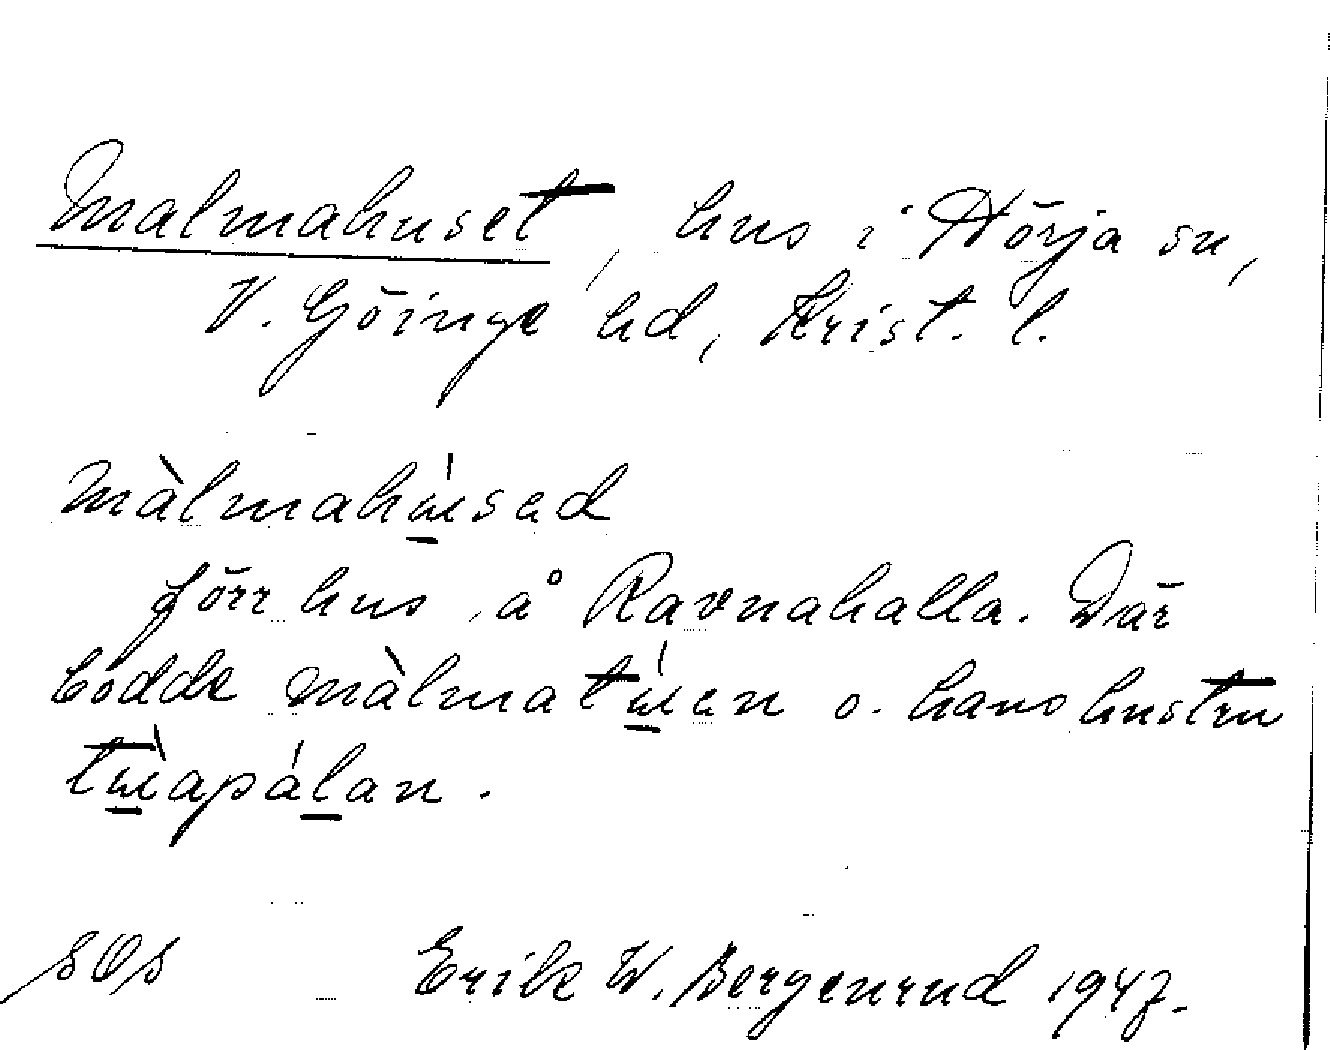 Malmahuset, hus i Nörja sn,
V. Göinge hd, Krist. l.
màlmahúsad
förr hus å Ravnahalla. Där
bodde màlmatúan o. hans hustru
tùapálan.
Erik W. Bergenrud 1947.